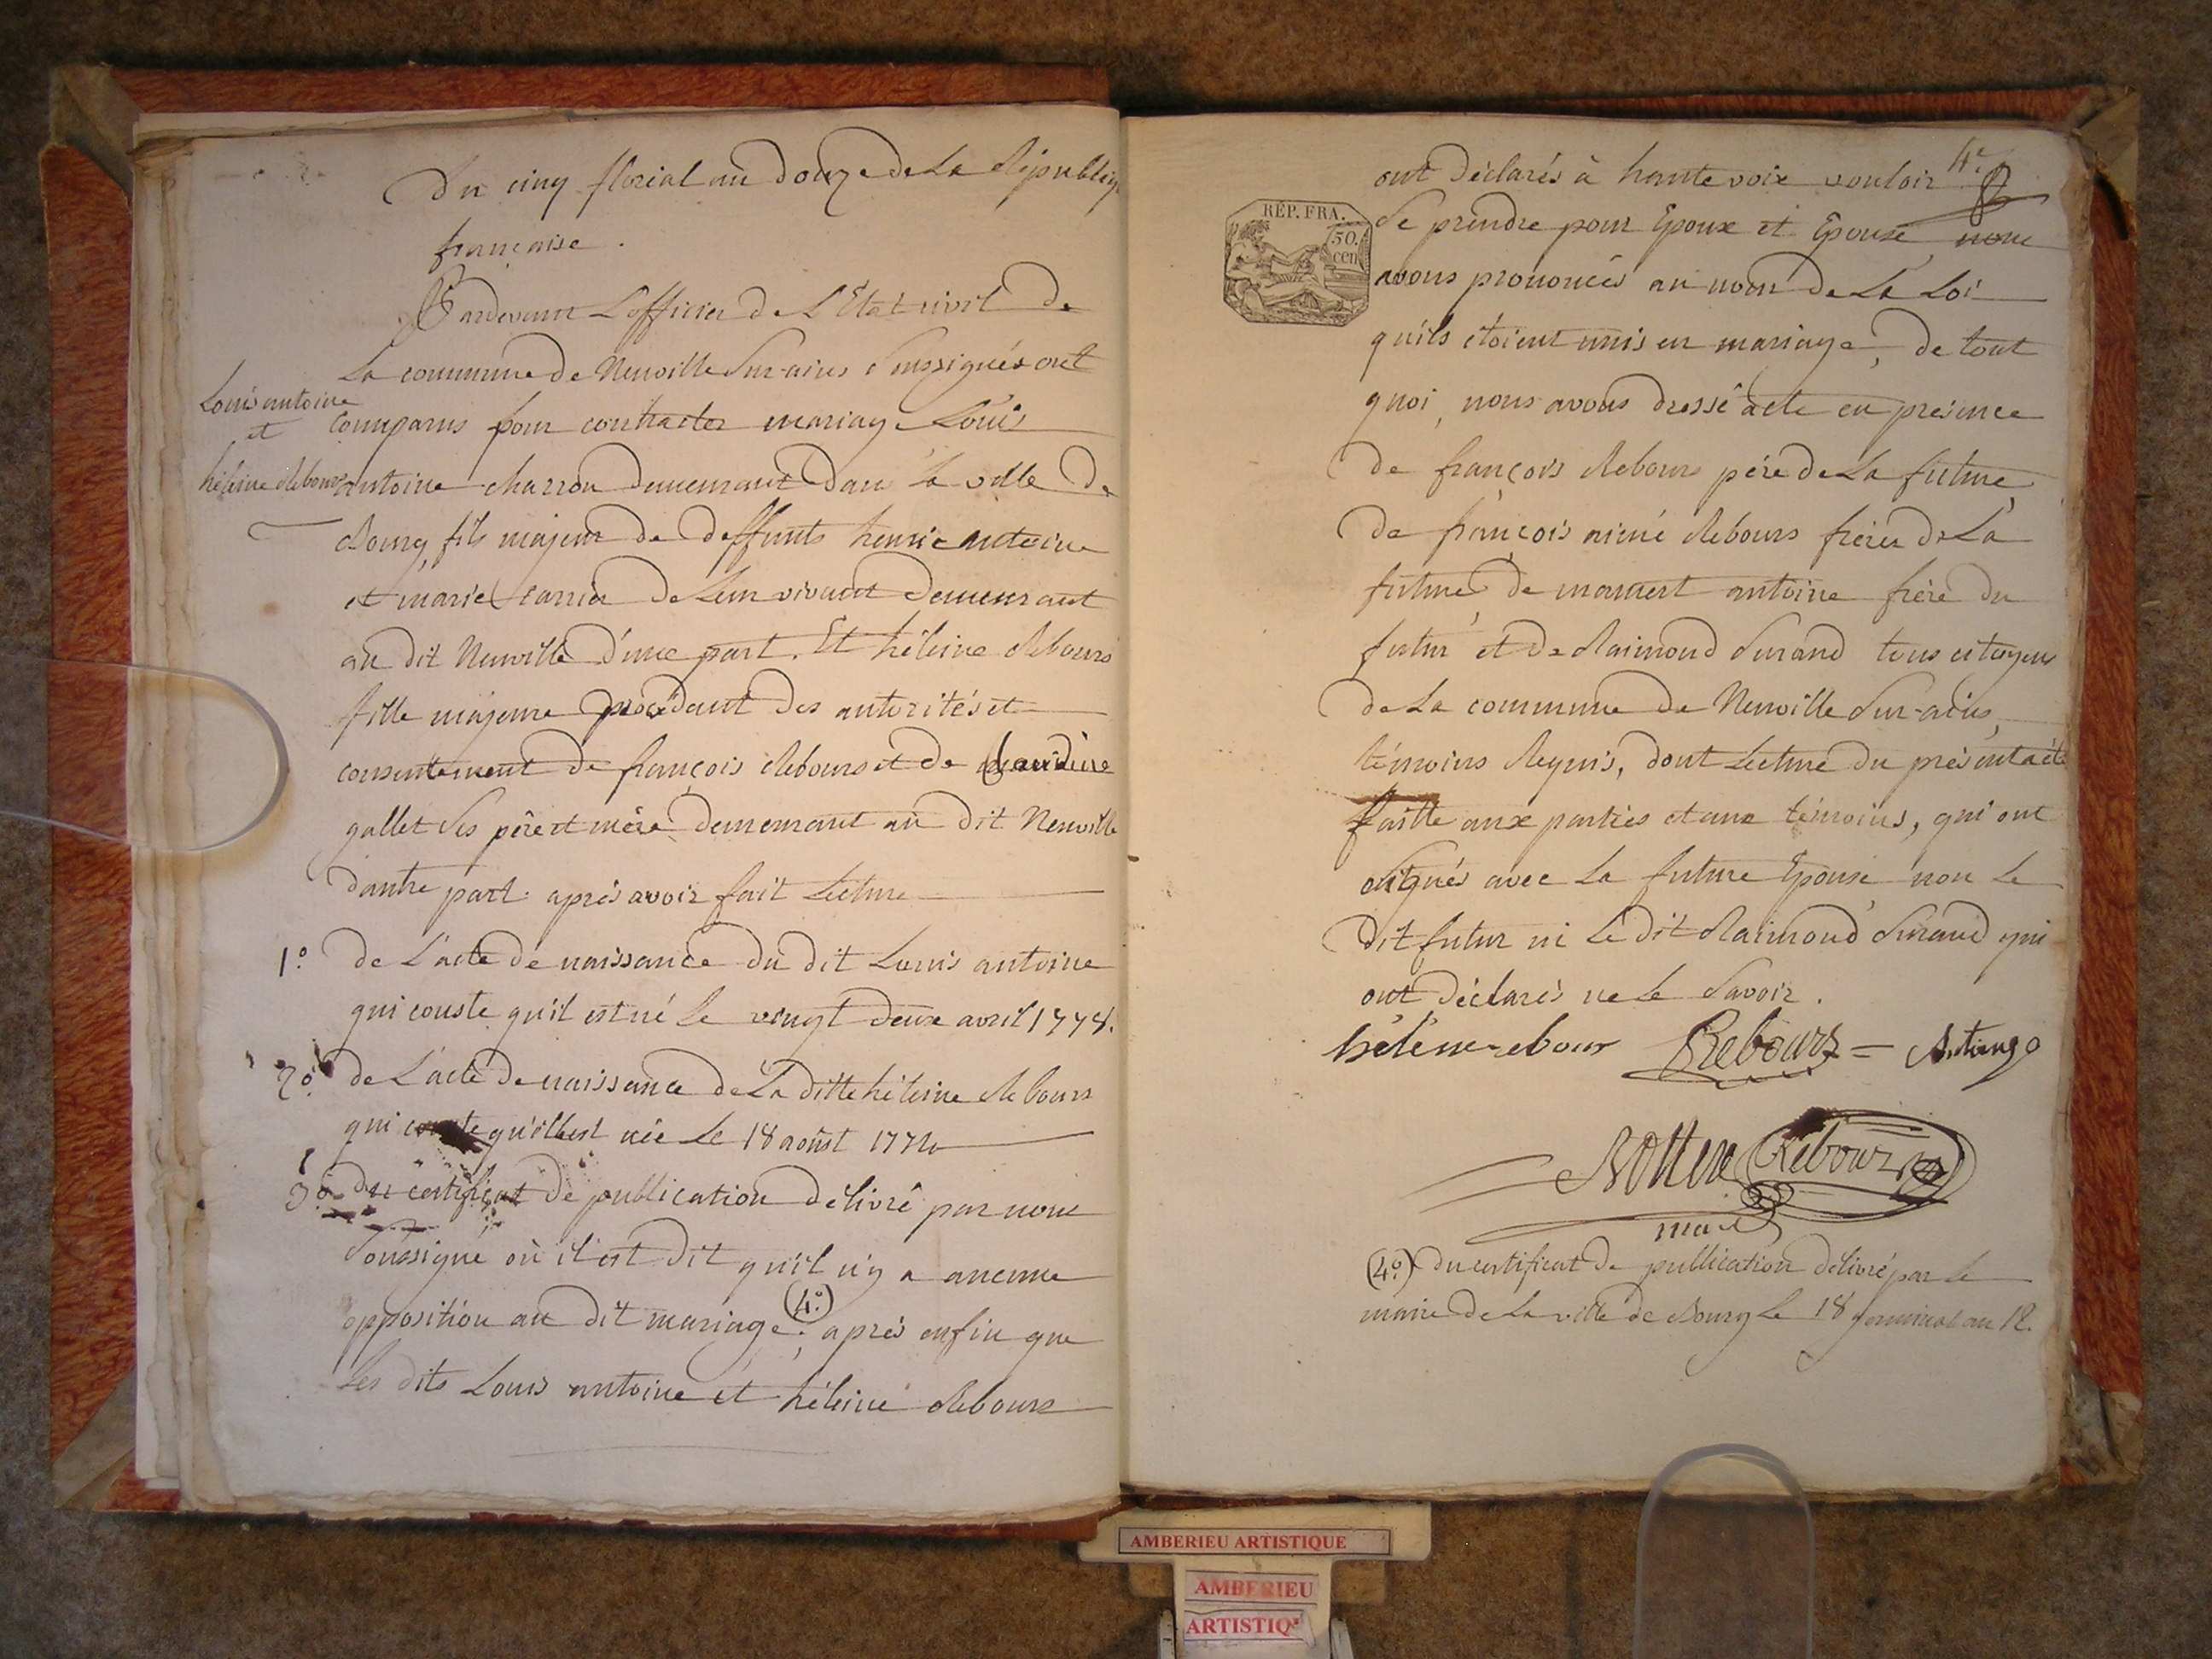 Du cinq florial an Douze de La Républiq
française .
Pardevant L'officier de L'Etat civil de
La commune de Neuville Sur-ains soussignés ont
Louis antoine
et
héleine Rebours
comparus pour contracter mariage Louis
antoine charron demeurant dans la ville de
Bourg fils majeur de deffunts henri antoine
et marie carrier de Leur vivant demeurant
au dit Neuville d'une part. Et héleine Rebours
fille majeure procédant des autorités et
consentement de françois Rebours et de Claudine
gallet Ses père et mère demeurant au dit Neuville
d'autre part. après avoir fait Lecture
1.º de L'acte de naissance du dit Louis antoine
qui conste qu'il est né Le vingt deux avril 1778.
2º de L'acte de naissance de La ditte héleine Rebours
qui conste qu'elle est née Le 18 août
3º du certificat de publication délivré par nous
soussigné où il est dit qu'il n'y a aucune
opposition au dit mariage (4º.) ; après enfin que
Les dits Louis antoine et héleine Rebours
4e
ont déclarés à haute voix vouloir
RÉP. FRA.
50.
cen
Se prendre pour Epoux et Epouse nous
avons prononcés au nom de La Loi
qu'ils étoient unis en mariage, de tout
quoi, nous avons dressé acte en présence
de françois Rebours père de La future
de françois aimé Rebours frère de La
future, de antoine frère du
futur et de Raimond Durand tous citoyens
de La commune de Neuville Sur-ains,
témoins Requis, dont Lecture du présent acte
faitte aux parties et aux témoins, qui ont
signés avec La future Epouse non Le
dit futur ni Le dit Raimond Durand qui
ont déclarés ne Le Savoir .
hélene rebour Rebours = Antoine
Rebour
maire
(4º.) du certificat de publication délivré par Le
maire de La ville de Bourg Le 18 germinal an 12.
AMBERIEU ARTISTIQUE
AMBERIEU
ARTISTIQ